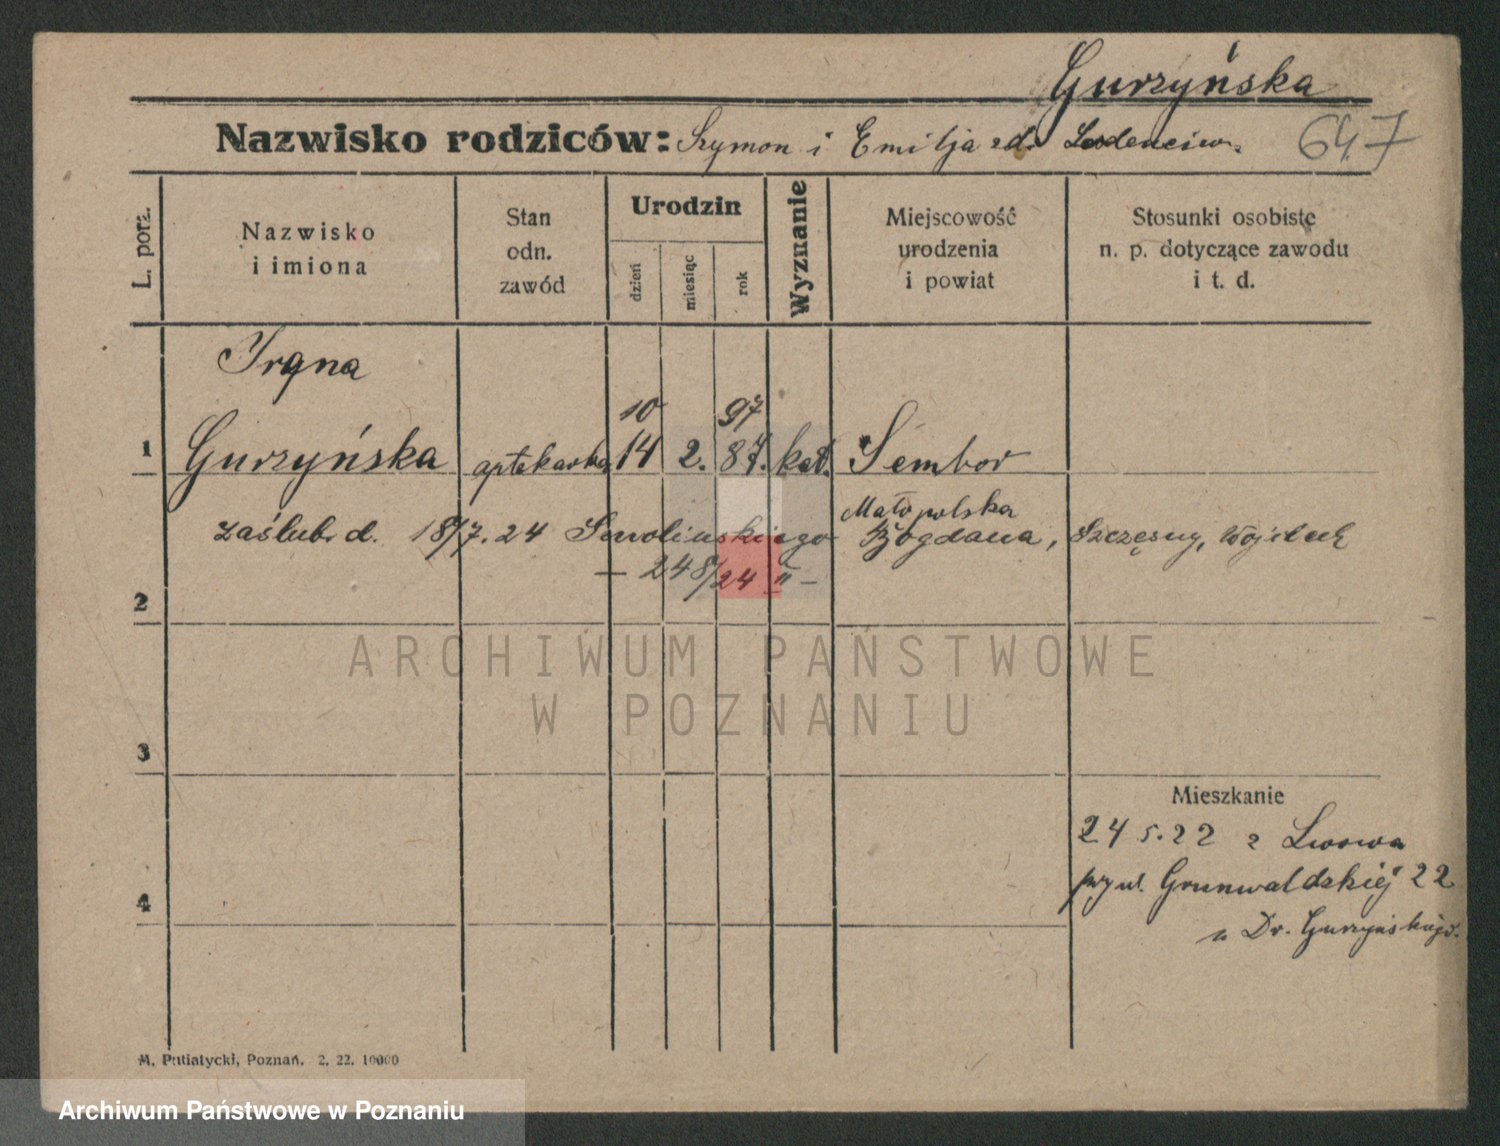 Gurzyńska
Nazwisko rodziców: Szymon i Emilja zd.
647
L. porz.
Nazwisko
i imiona
Stan
odn.
zawód
Urodzin
dzień
miesiąc
rok
Wyznanie
Miejscowość
urodzenia
i powiat
Stosunki osobiste
n. p. dotyczące zawodu
i t. d.
Iryna
10 97
1 Gurzyńska aptekarka 14 2. 87. kat. Sambor
Małopolska
zaślub. d. 18/7. 24 Smolińskiego Bogdana, Szczęsny, Wojciech
— 248/24 II —
2
ARCHIWUM PAŃSTWOWE
W POZNANIU
3
Mieszkanie
24 5. 22 z Lwowa
przy ul. Grunwaldzkiej 22
4
u Dr. Gurzyńskiego.
M. Putiatycki, Poznań. 2. 22. 10000
Archiwum Państwowe w Poznaniu